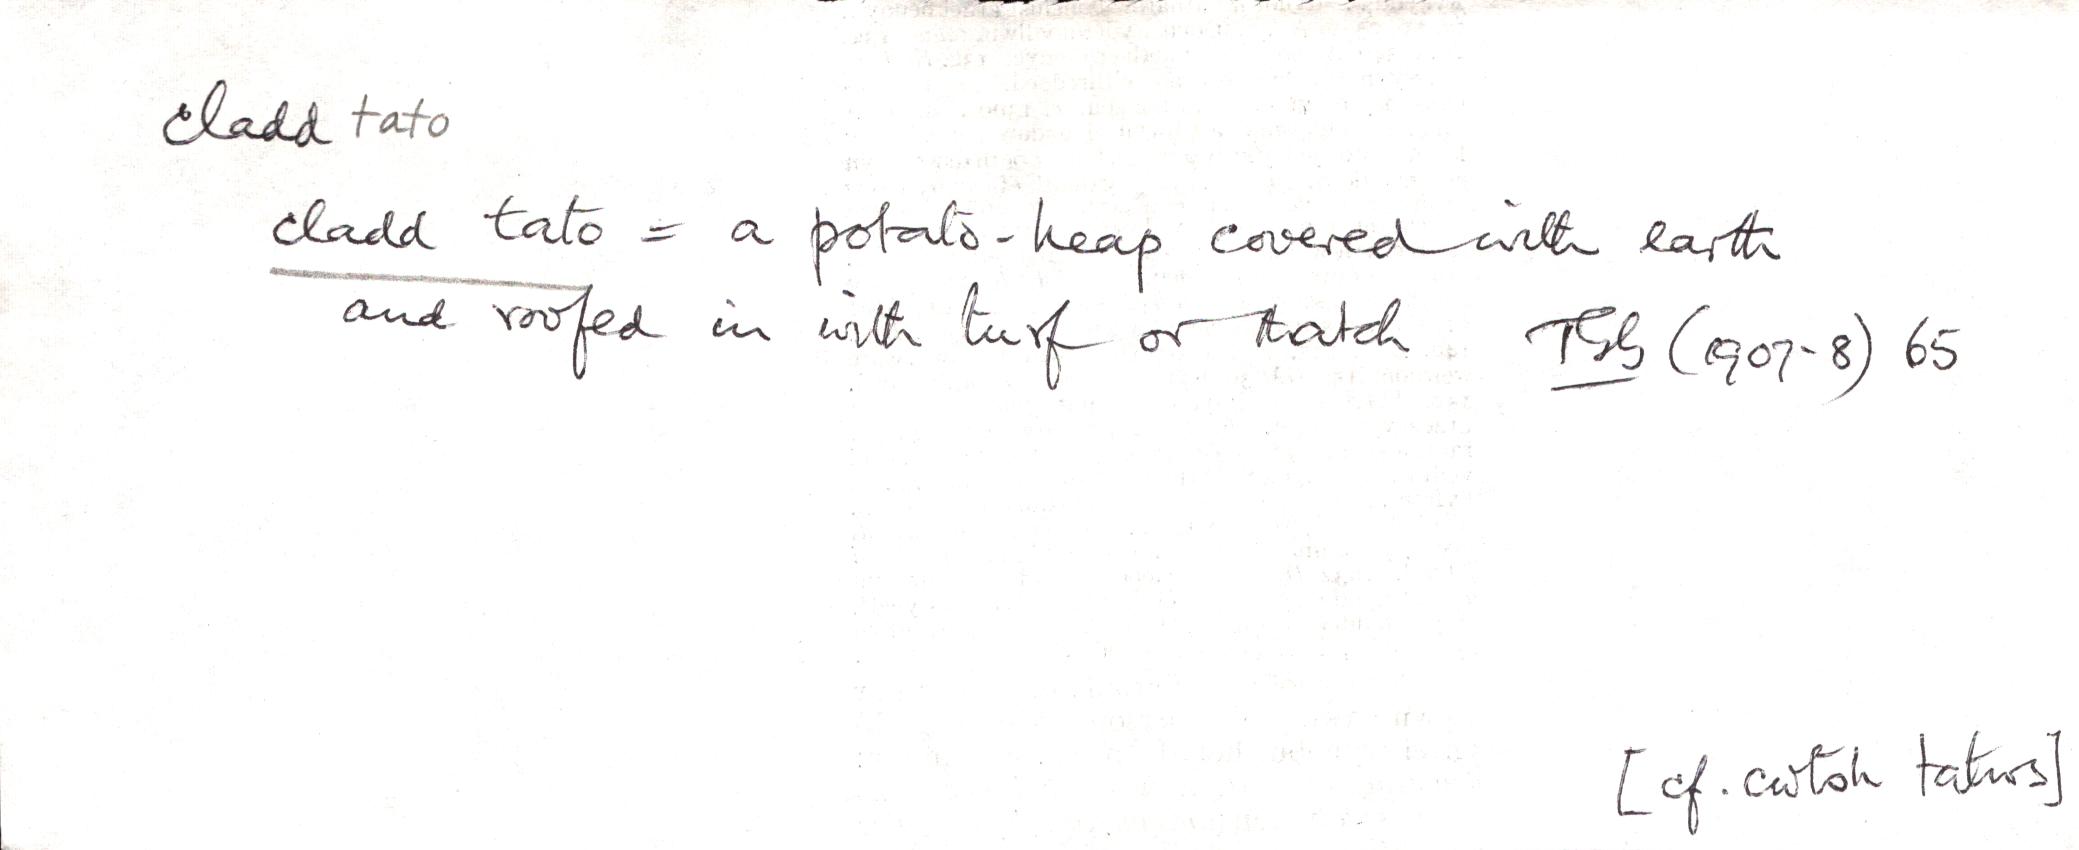 cladd tato
cladd tato = a potato-heap covered with earth
and roofed in with turf or thatch TGG (1907-8) 65
[cf. cwtch tatws]